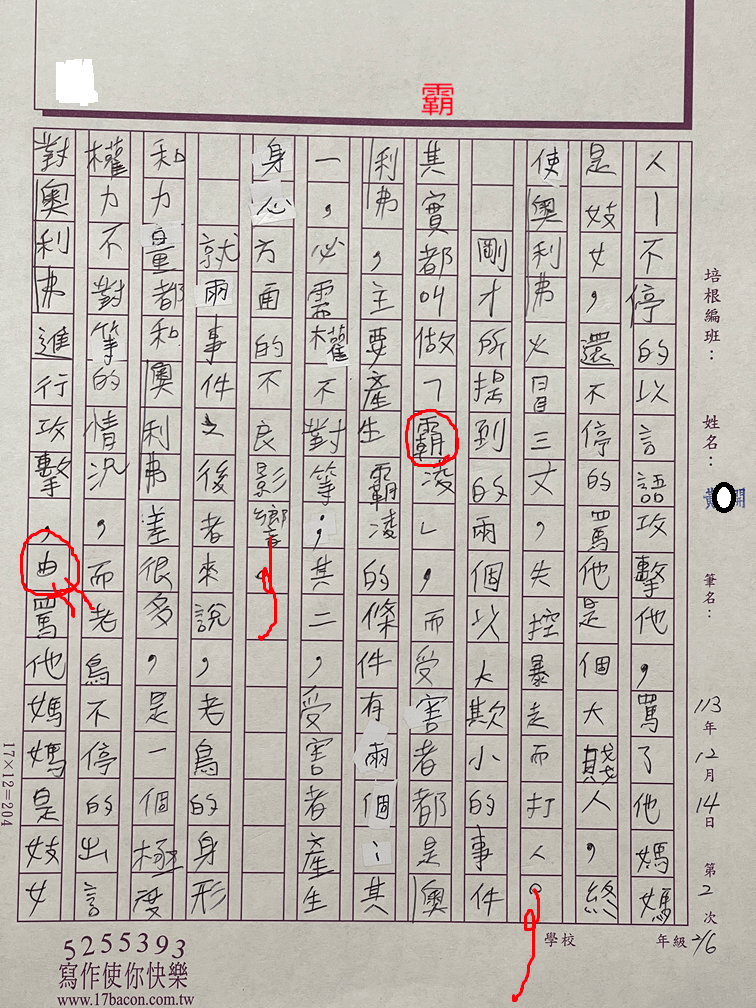 霸
人—不停的以言語攻擊他，罵了他媽媽
是妓女，還不停的罵他是個大賤人，終
使奧利弗火冒三丈，失控暴走而打人。
剛才所提到的兩個以大欺小的事件
其實都叫做「霸凌」，而受害者都是奧
利弗，主要產生霸凌的條件有兩個：其
一，必需權不對等；其二，受害者產生
身心方面的不良影響。
就兩事件之後者來說，老鳥的身形
和力量都和奧利弗差很多，是一個極度
權力不對等的情況，而老鳥不停的出言
對奧利弗進行攻擊，曲罵他媽媽是妓女
培根編班：
姓名：
筆名：
113年12月14日 第2次
學校 年級 2/6
17×12=204
5255393
寫作使你快樂
www.17bacon.com.tw